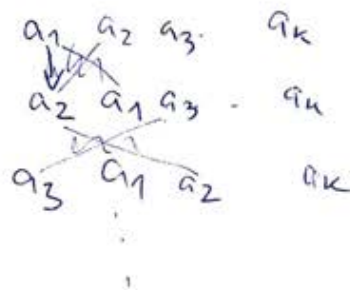 a₁ a₂ a₃. aₖ
a₂ a₁ a₃ - aₖ
a₃ a₁ a₂ aₖ
⋮